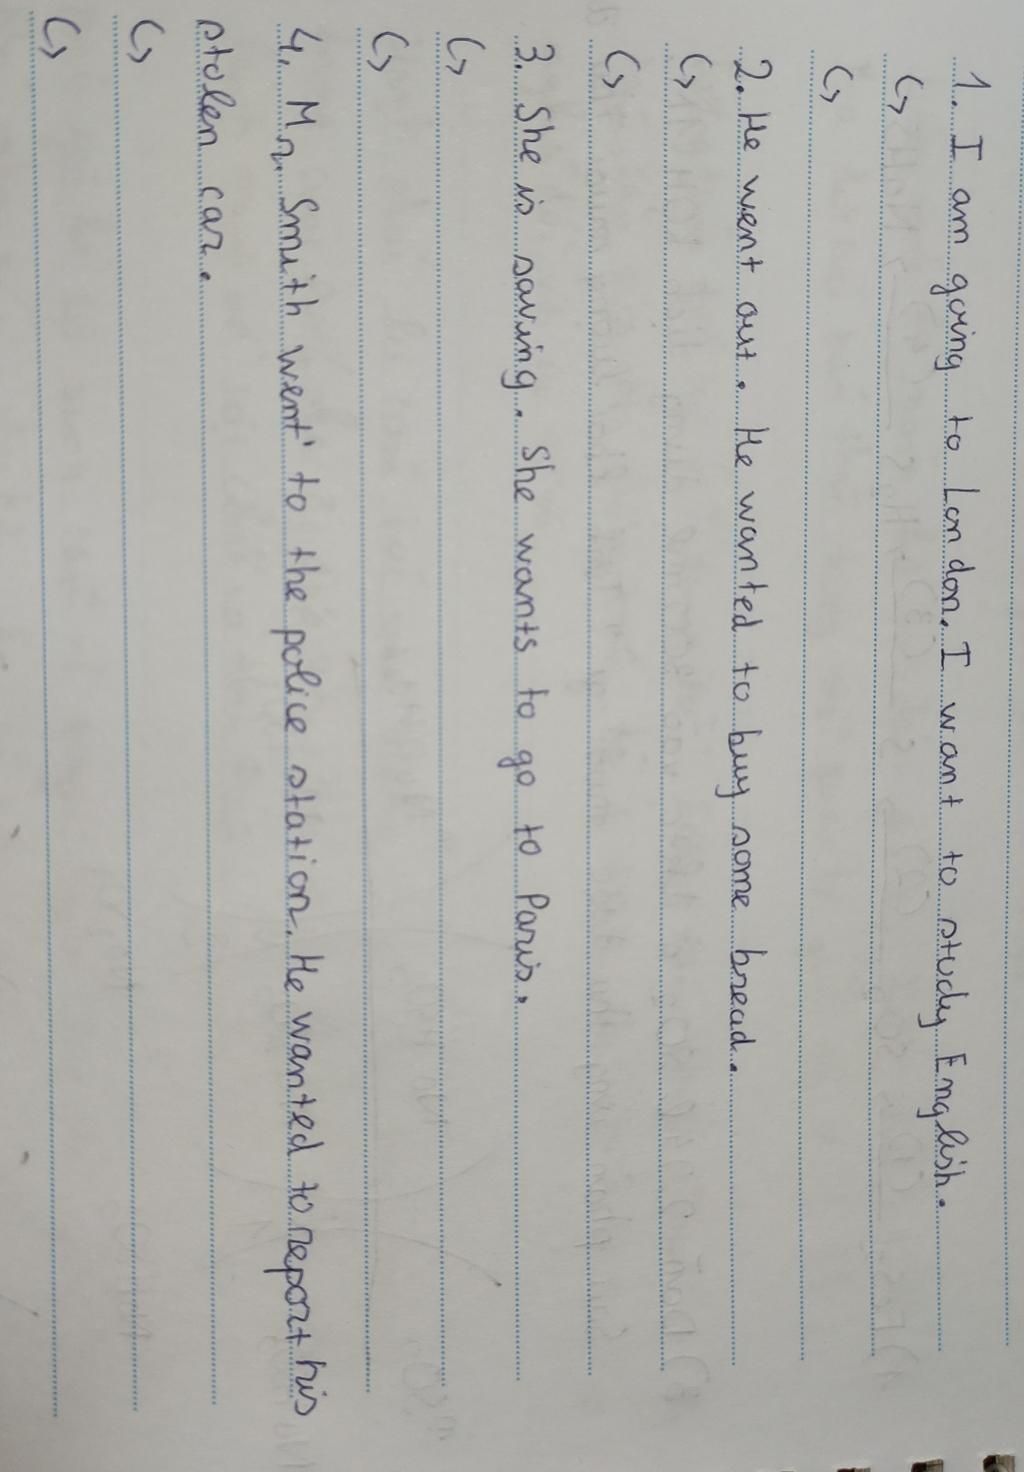 1. I am going to London. I want to study English.
↳
↳
2. He went out. He wanted to buy some bread.
↳
↳
3. She is saving. She wants to go to Paris.
↳
↳
4. Mr. Smith went to the police station. He wanted to report his
stolen car.
↳
↳